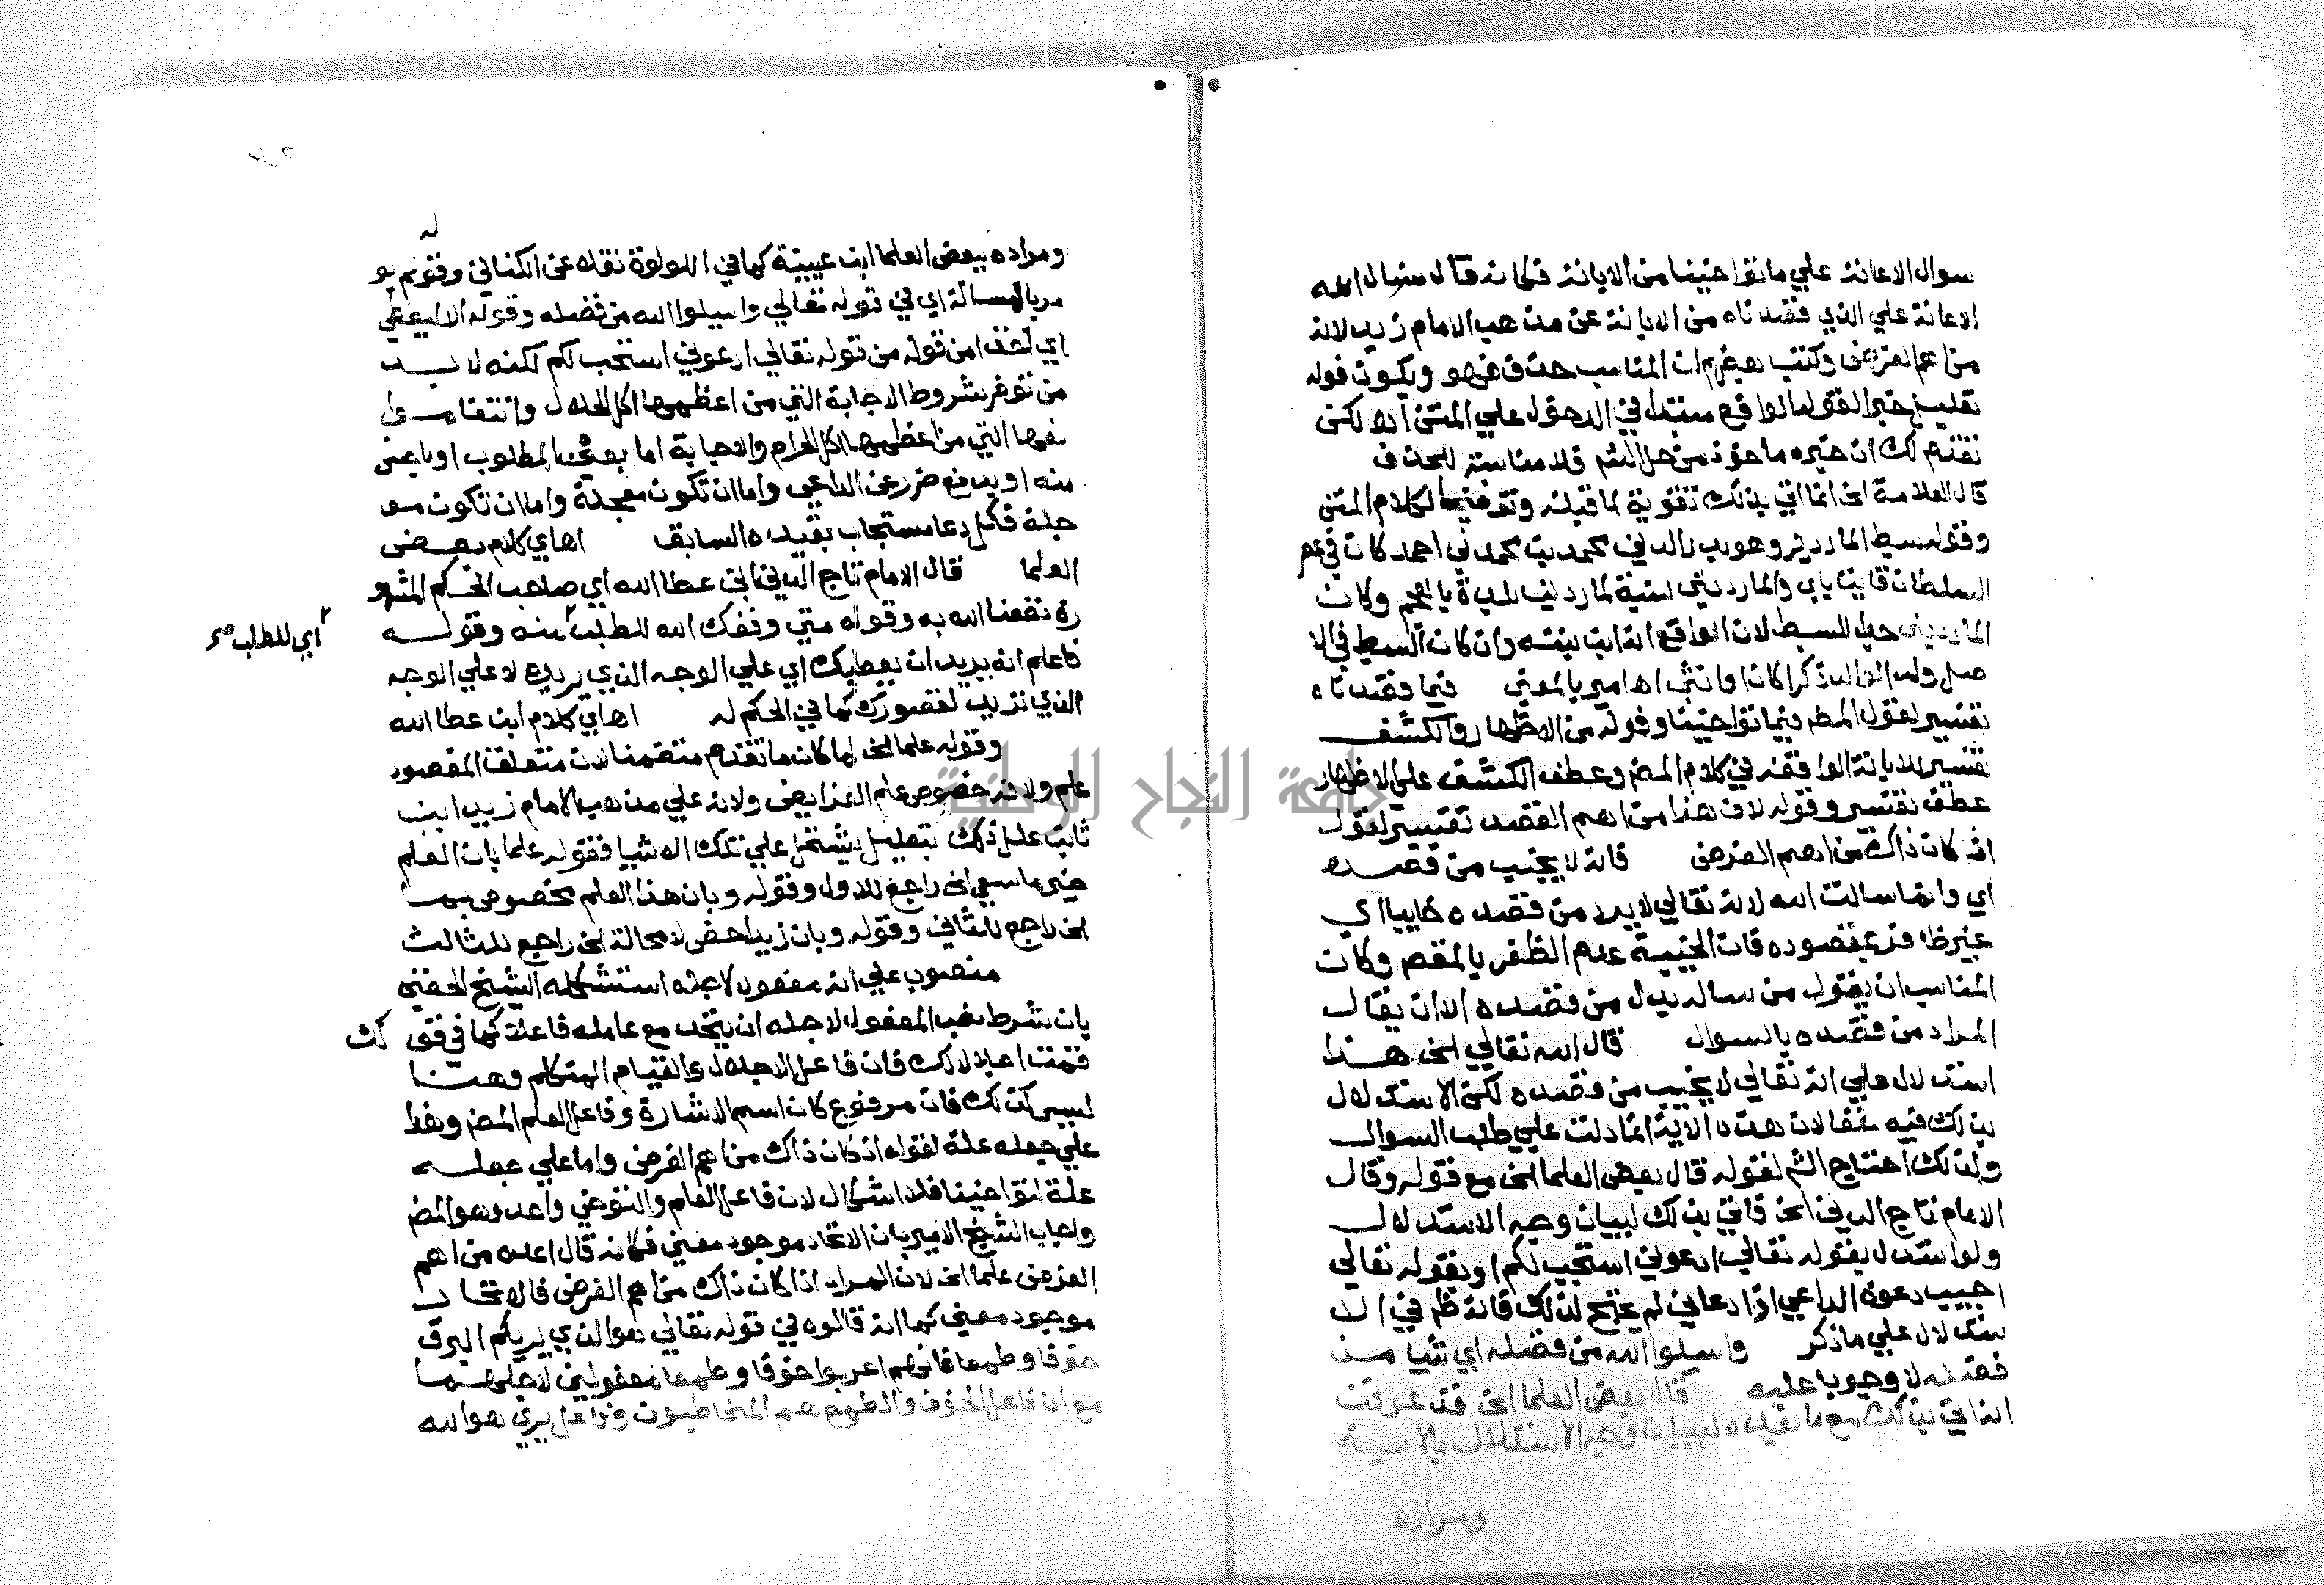 سوال الاعانة علي ما توا خينا من الابانة فكانه قال نسال الله
الاعانة علي الذي قصدناه من الابانة عن مذهب الامام زيد لانه
من اهم الغرض وكتب بعضهم ان المناسب حذف فهو ويكون قوله
خبر القوله الواقع مبتدا في الدخول علي المتن اه لكن
تقدم لك ان خبره ماخوذ من حل الشم فلا مناسبة للحذف
قال العلامة الخ انما اتي بذلك تقوية لما قبله وتوضيحا لكلام المتن
وقوله سبط المارديني وهو بدر الدين محمد بن محمد بن احمد كان في عصر
السلطان قايتباي والمارديني نسبة لماردين بلدة بالعجم وكان
المارديني جد السبط لان الواقع انه ابن بنته وان كان السبط في الا
صل ولد الولد ذكرا كان او انثي اه امير بالمعني فيما قصدناه
تفسير لقول المصم فيما توا خينا وقوله من الاظهار والكشف
تفسير للابانة الواقعة في كلام المصم وعطف الكشف علي الاظهار
عطف تفسير وقوله لان هذا من اهم القصد تفسير لقوله
اذ كان ذاك من اهم الغرض فانه لا يخيب من قصده
اي وانما سالت الله لانه تعالي لا يرد من قصده خايبا اي
غير ظافر بمقصوده فان الخيبة عدم الظفر بالمقصم وكان
المناسب ان يقول من ساله بدل من قصده الا ان يقال
المراد من قصده بالسوال قال الله تعالي الخ هذا
استدلال علي انه تعالي لا يخيب من قصده لكن الاستدلال
بذلك فيه خفا لان هذه الاية انما دلت علي طلب السوال
ولذلك احتاج الشم لقوله قال بعض العلما الخ مع قوله وقال
الامام تاج الدين الخ فاتي بذلك لبيان وجه الاستدلال
ولو استدل بقوله تعالي ادعوني استجب لكم او بقوله تعالي
اجيب دعوة الداعي اذا دعاني لم يحتج لذلك فانه ظم في الا
ستدلال علي ما ذكر واسيلوا الله من فضله اي شيا من
فضله لا وجوبا عليه قال بعض العلما الخ قد عرفت
انه اتي بذلك مع ما بعده لبيان وجه الاستدلال بالاية
ومراده
ومراده ببعض العلما ابن عيينة كما في اللولوة نقله عن الكناني وقوله لم يو
مر بالمسالة اي في قوله تعالي واسيلوا الله من فضله وقوله الا ليعطي
اي اخذا من قوله من قوله تعالي ادعوني استجب لكم لكنه لا بد
من توفر شروط الاجابة التي من اعظمها اكل الحلال وانتفا موا
نعها التي من اعظمها اكل الحرام والاجابة اما بعين المطلوب او بابعض
منه او بدفع ضرر عن الداعي واما ان تكون معجلة واما ان تكون مو
جلة فكل دعا مستجاب بقيده السابق اه اي كلام بعض
العلما قال الامام تاج الدين ابن عطا الله اي صاحب الحكم المشهو
رة نفعنا الله به وقوله متي وفقك الله للطلب منه وقوله
اي للطلب صح
فاعلم انه يريد ان يعطيك اي علي الوجه الذي يريده لا علي الوجه
الذي تريد لقصورك كما في الحكم له اه اي كلام ابن عطا الله
وقوله علما الخ لما كان ما تقدم متضمنا لان متعلقنا المقصود
علم ولانه خصوص علم الفرايض ولانه علي مذهب الامام زيد ابن
ثابت علل ذلك بتعليل يشتمل علي تلك الاشيا فقوله علما بان العلم
خير ما سعي الخ راجع للاول وقوله وبان هذا العلم مخصوص بما
الخ راجع للثاني وقوله وبان زيدا خص لا محالة الخ راجع للثالث
منصوب علي انه مفعول لاجله استشكله الشيخ الحفني
بان شرط نصب المفعول لاجله ان يتحد مع عامله فاعلا كما في قولك
قمت اجلالا لك فان فاعل الاجلال والقيام المتكلم وهنا
ليس كذلك فان مرفوع كان اسم الاشارة وفاعل العلم المصم وهذا
علي جعله علة لقوله اذ كان ذاك من اهم الغرض واما علي جعله
علة لتوا خينا فلا اشكال لان فاعل العلم والتوخي واحد وهو المصم
واجاب الشيخ الامير بان الاتحاد موجود معني فكانه قال اعده من اهم
الغرض علما الخ لان المراد اذ كان ذاك من اهم الغرض فالاتحاد
موجود معني كما انه قالوه في قوله تعالي هو الذي يريكم البرق
خوفا وطمعا فانهم اعربوا خوفا وطمعا مفعولين لاجلهما
مع ان فاعل الخوف والطمع هم المخاطبون وفاعل يري هو الله